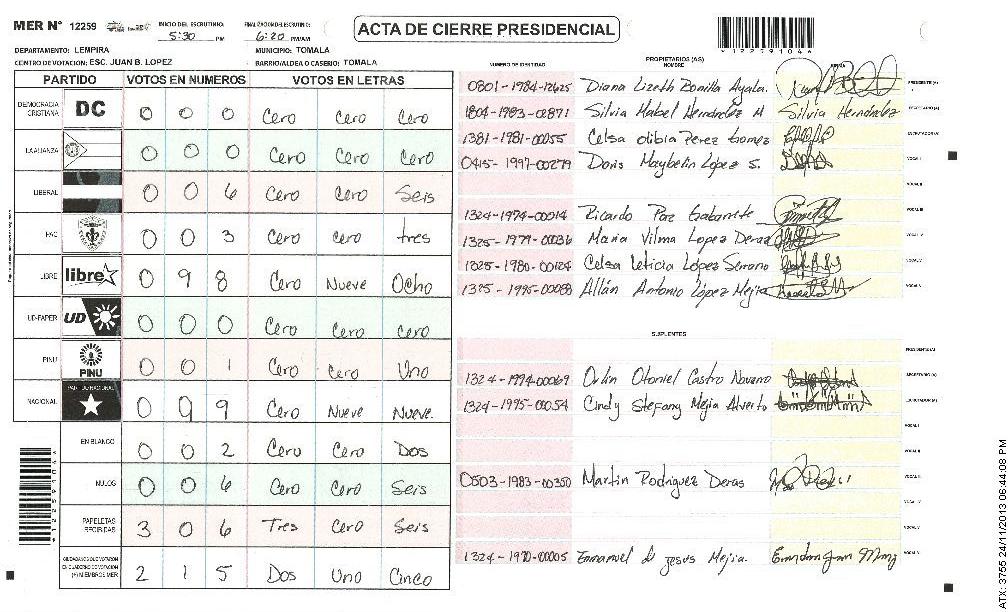 MER N° 12259
INICIO DEL ESCRUTINIO: 5:30 PM
FINALIZACION DEL ESCRUTINIO: 6:20 PM/AM
ACTA DE CIERRE PRESIDENCIAL
DEPARTAMENTO: LEMPIRA
MUNICIPIO: TOMALA
CENTRO DE VOTACION: ESC. JUAN B. LOPEZ
BARRIO/ALDEA O CASERIO: TOMALA
PARTIDO VOTOS EN NUMEROS VOTOS EN LETRAS
DEMOCRACIA CRISTIANA DC 0 0 0 Cero Cero Cero
LA ALIANZA 0 0 0 Cero Cero Cero
LIBERAL 0 0 6 Cero Cero Seis
PAC 0 0 3 Cero Cero tres
LIBRE libre 0 9 8 Cero Nueve Ocho
UD-FAPER UD 0 0 0 Cero Cero Cero
PINU PINU 0 0 1 Cero Cero Uno
NACIONAL PARTIDO NACIONAL 0 9 9 Cero Nueve Nueve
EN BLANCO 0 0 2 Cero Cero Dos
NULOS 0 0 6 Cero Cero Seis
PAPELETAS RECIBIDAS 3 0 6 Tres Cero Seis
2 1 5 Dos Uno Cinco
NUMERO DE IDENTIDAD
PROPIETARIOS (AS)
NOMBRE
FIRMA
0801-1984-12625 Diana Lizeth Bonilla Ayala. PRESIDENTE (A)
1804-1983-02871 Silvia Mabel Hernández M Silvia Hernández SECRETARIO (A)
1381-1981-00055 Celsa olibia Perez Gomez ESCRUTADOR (A)
0415-1997-00279 Doris Maybelin Lopez S. VOCAL I
VOCAL II
1324-1974-00014 Ricardo Paz VOCAL III
1325-1979-00036 Maria Vilma Lopez Deras VOCAL IV
1325-1980-00124 Celsa Leticia López Serrano VOCAL V
1325-1995-00088 Allán Antonio López Mejia
SUPLENTES
PRESIDENTE (A)
1324-1994-00069 Orlin Otoniel Castro Navarro SECRETARIO (A)
1324-1995-00054 Cindy Stefany Mejia Alverto ESCRUTADOR (A)
VOCAL I
VOCAL II
0503-1983-00350 Martin Rodriguez Deras VOCAL III
VOCAL IV
VOCAL V
1324-1970-00005 Emmanuel de jesus Mejia.
ATX: 3755 24/11/2013 06:44:08 PM